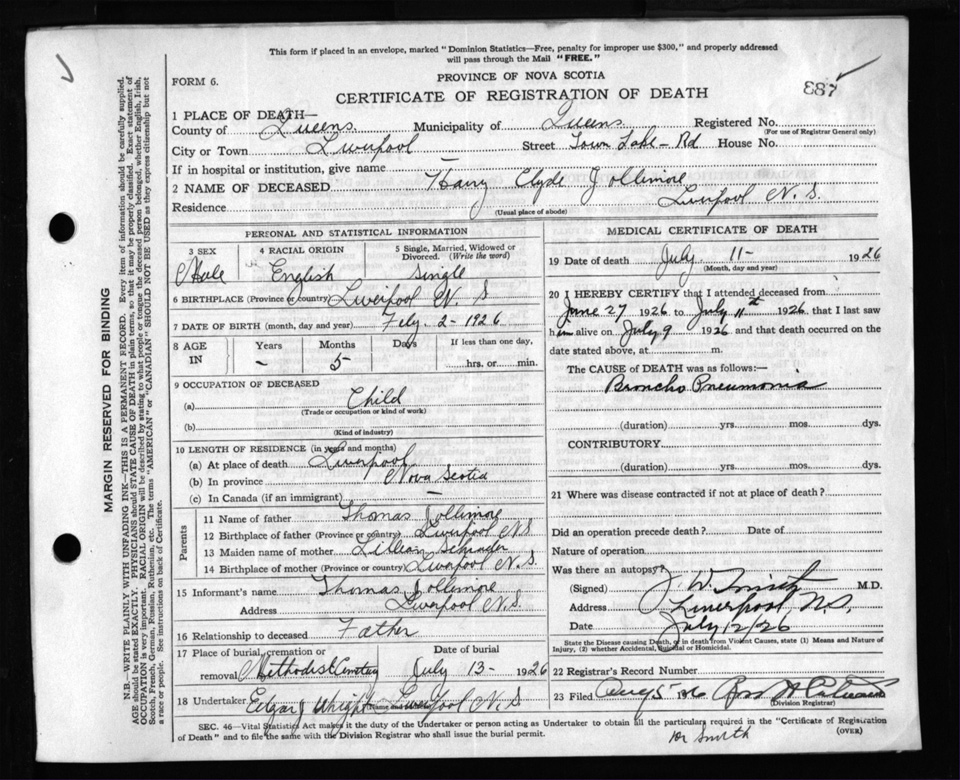 This form if placed in an envelope, marked "Dominion Statistics—Free, penalty for improper use $300," and properly addressed
will pass through the Mail "FREE."
FORM 6.
PROVINCE OF NOVA SCOTIA
887
CERTIFICATE OF REGISTRATION OF DEATH
1 PLACE OF DEATH—
County of Queens Municipality of Queens Registered No.
(For use of Registrar General only)
City or Town Liverpool Street Town Lake - Rd House No.
If in hospital or institution, give name —
2 NAME OF DECEASED Harry Clyde Jollimore
Residence Liverpool N. S.
(Usual place of abode)
PERSONAL AND STATISTICAL INFORMATION
3 SEX 4 RACIAL ORIGIN 5 Single, Married, Widowed or Divorced. (Write the word)
Male English Single
6 BIRTHPLACE (Province or country) Liverpool N. S
7 DATE OF BIRTH (month, day and year) Feby. 2 - 1926
8 AGE IN Years Months Days If less than one day,
- 5 hrs. or min.
9 OCCUPATION OF DECEASED
(a) Child
(Trade or occupation or kind of work)
(b)
(Kind of industry)
10 LENGTH OF RESIDENCE (in years and months)
(a) At place of death Liverpool
(b) In province Nova Scotia
(c) In Canada (if an immigrant) —
Parents
11 Name of father Thomas Jollimore
12 Birthplace of father (Province or country) Liverpool N S
13 Maiden name of mother Lillian Schrader
14 Birthplace of mother (Province or country) Liverpool N. S.
15 Informant's name Thomas Jollimore
Address Liverpool N.S.
16 Relationship to deceased Father
17 Place of burial, cremation or removal Date of burial
Methodist Cemetery July 13 - 1926
18 Undertaker Edgar Wright Liverpool N. S
MEDICAL CERTIFICATE OF DEATH
19 Date of death July 11 - 1926
(Month, day and year)
20 I HEREBY CERTIFY that I attended deceased from
June 27 1926 to July 11th 1926, that I last saw
him alive on July 9 1926 and that death occurred on the
date stated above, at m.
The CAUSE of DEATH was as follows:—
Broncho Pneumonia
(duration) yrs. mos. dys.
CONTRIBUTORY
(duration) yrs. mos. dys.
21 Where was disease contracted if not at place of death?
Did an operation precede death? Date of
Nature of operation
Was there an autopsy?
(Signed) J. W. Smith M.D.
Address Liverpool, N.S,
Date July 12/26
State the Disease causing Death, or in death from Violent Causes, state (1) Means and Nature of
Injury, (2) whether Accidental, Suicidal or Homicidal.
22 Registrar's Record Number
23 Filed Aug 5 1926
(Division Registrar)
SEC. 46—Vital Statistics Act makes it the duty of the Undertaker or person acting as Undertaker to obtain all the particulars required in the "Certificate of Registration
of Death" and to file the same with the Division Registrar who shall issue the burial permit.
(OVER)
Dr Smith
MARGIN RESERVED FOR BINDING
N.B.—WRITE PLAINLY WITH UNFADING INK—THIS IS A PERMANENT RECORD. Every item of information should be carefully supplied.
AGE should be stated EXACTLY. PHYSICIANS should STATE CAUSE OF DEATH in plain terms, so that it may be properly classified. Exact statement of
OCCUPATION is very important. RACIAL ORIGIN will be described by stating to what people or tongue the deceased person belonged, whether English, Irish,
Scotch, French, German, Russian, Ruthenian, etc. The terms "AMERICAN" or "CANADIAN" SHOULD NOT BE USED as they express citizenship but not
a race or people. See instructions on back of Certificate.